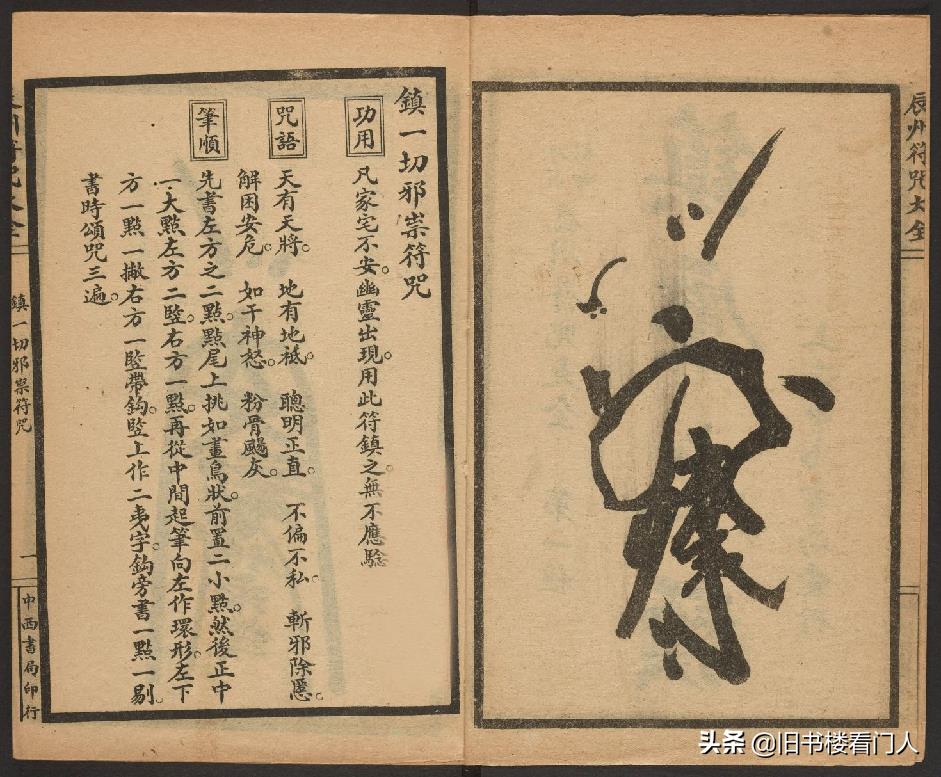 辰州符咒大全
鎮一切邪祟符咒
功用
凡家宅不安。幽靈出現。用此符鎮之。無不應驗
咒語
天有天將。地有地祗。聰明正直。不偏不私。斬邪除惡。
解困安危。如干神怒。粉骨颺灰。
筆順
先書左方之二點。點尾上挑如畫鳥狀。前置二小點。然後正中
一大點。左方二竪。右方一點。再從中間起筆向左作環形。左下
方一點一撇。右方一竪帶鈎。竪上作二夷字。鈎旁書一點一剔。
書時頌咒三遍。
鎮一切邪祟符咒
一
中西書局印行
头条 @旧书楼看门人